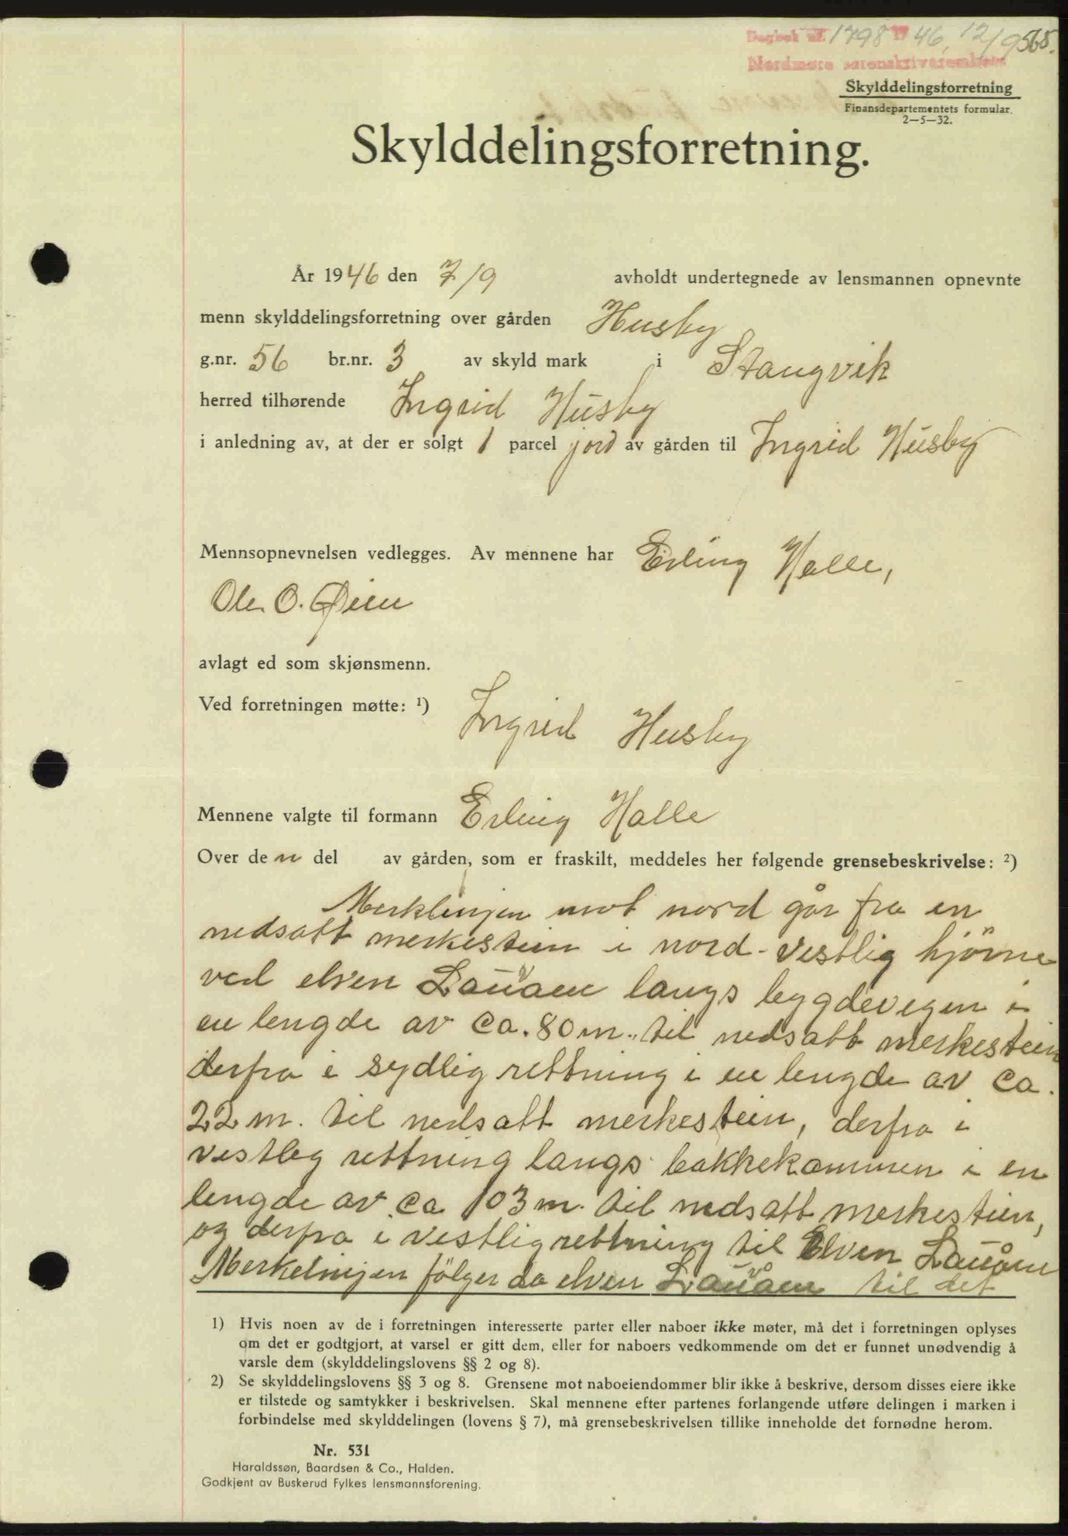 Dagbok nr. 1798 1946, 12/9 565.
Nordmøre sorenskriverembete
Skylddelingsforretning
Finansdepartementets formular.
2—5—32.
Skylddelingsforretning.
År 1946 den 7/9 avholdt undertegnede av lensmannen opnevnte
menn skylddelingsforretning over gården Husby
g.nr. 56 br.nr. 3 av skyld mark i Stangvik
herred tilhørende Ingrid Husby
i anledning av, at der er solgt 1 parcel jord av gården til Ingrid Husby
Mennsopnevnelsen vedlegges. Av mennene har Erling Halle,
Ole O. Øien
avlagt ed som skjønsmenn.
Ved forretningen møtte: ¹) Ingrid Husby
Mennene valgte til formann Erling Halle
Over de n del av gården, som er fraskilt, meddeles her følgende grensebeskrivelse: ²)
Merklinjen mot nord går fra en
nedsatt merkestein i nord-vestlig hjörne
ved elven Lauvåen langs bygdevegen i
en lengde av ca. 80 m. til nedsatt merkestein
derfra i sydlig rettning i en lengde av ca.
22 m. til nedsatt merkestein, derfra i
vestleg rettning langs bakkekammen i en
lengde av ca 103 m. til nedsatt merkestein,
og derfra i vestlig rettning til Elven Lauåen
Merkelinjen fölger da elven Lauvåen til det
1) Hvis noen av de i forretningen interesserte parter eller naboer ikke møter, må det i forretningen oplyses
om det er godtgjort, at varsel er gitt dem, eller for naboers vedkommende om det er funnet unødvendig å
varsle dem (skylddelingslovens §§ 2 og 8).
2) Se skylddelingslovens §§ 3 og 8. Grensene mot naboeiendommer blir ikke å beskrive, dersom disses eiere ikke
er tilstede og samtykker i beskrivelsen. Skal mennene efter partenes forlangende utføre delingen i marken i
forbindelse med skylddelingen (lovens § 7), må grensebeskrivelsen tillike inneholde det fornødne herom.
Nr. 531
Haraldssøn, Baardsen & Co., Halden.
Godkjent av Buskerud Fylkes lensmannsforening.